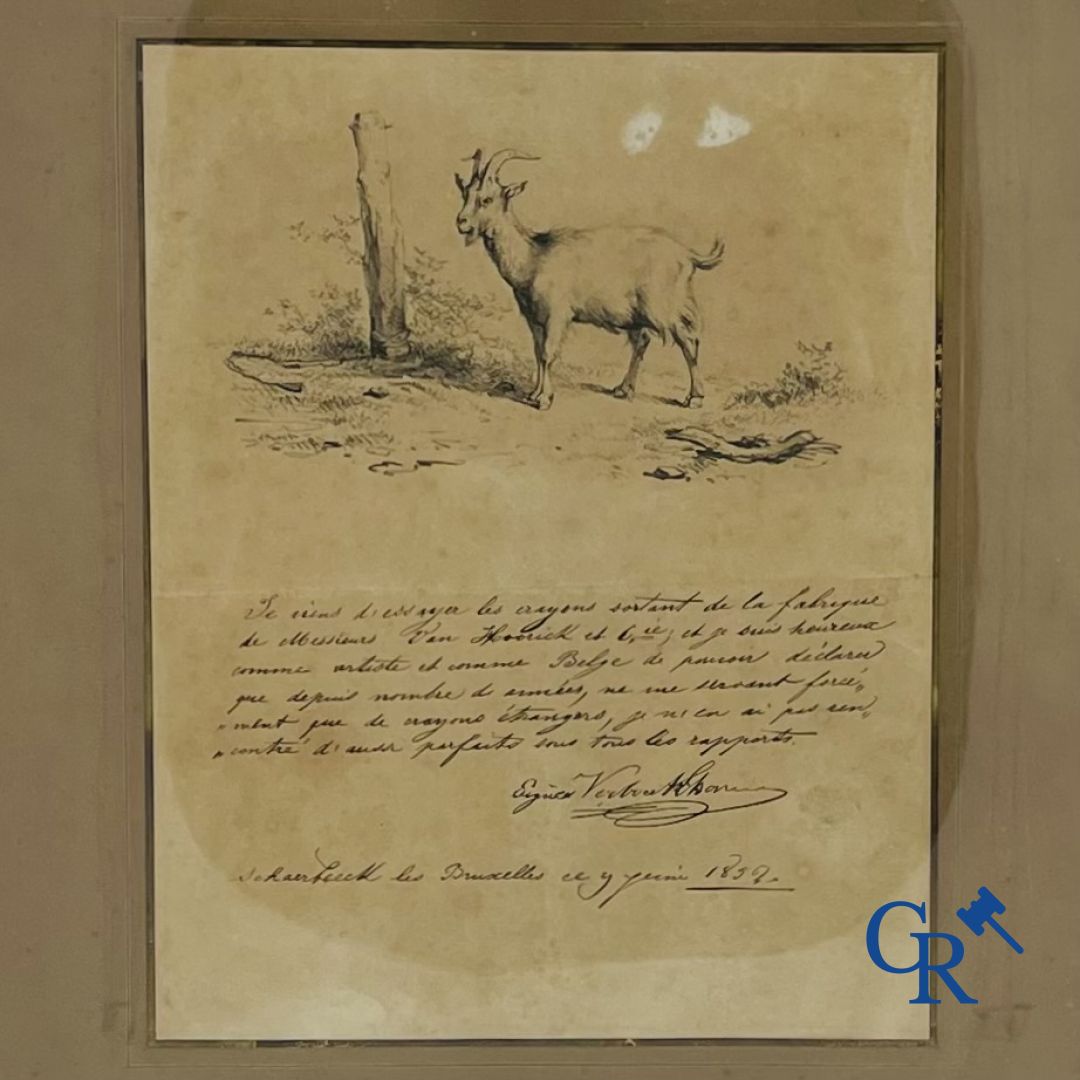 Je viens d'essayer les crayons sortant de la fabrique
de Messieurs Van Hoorick et Cie, et je suis heureux
comme artiste et comme Belge de pouvoir déclarer
que depuis nombre d'années, ne me servant forcé„
„ment que de crayons étrangers, je n'en ai pas ren„
„contré d'aussi parfaits sous tous les rapports.
Eugène Verboeckhoven
Schaerbeeck les Bruxelles ce juin
CR